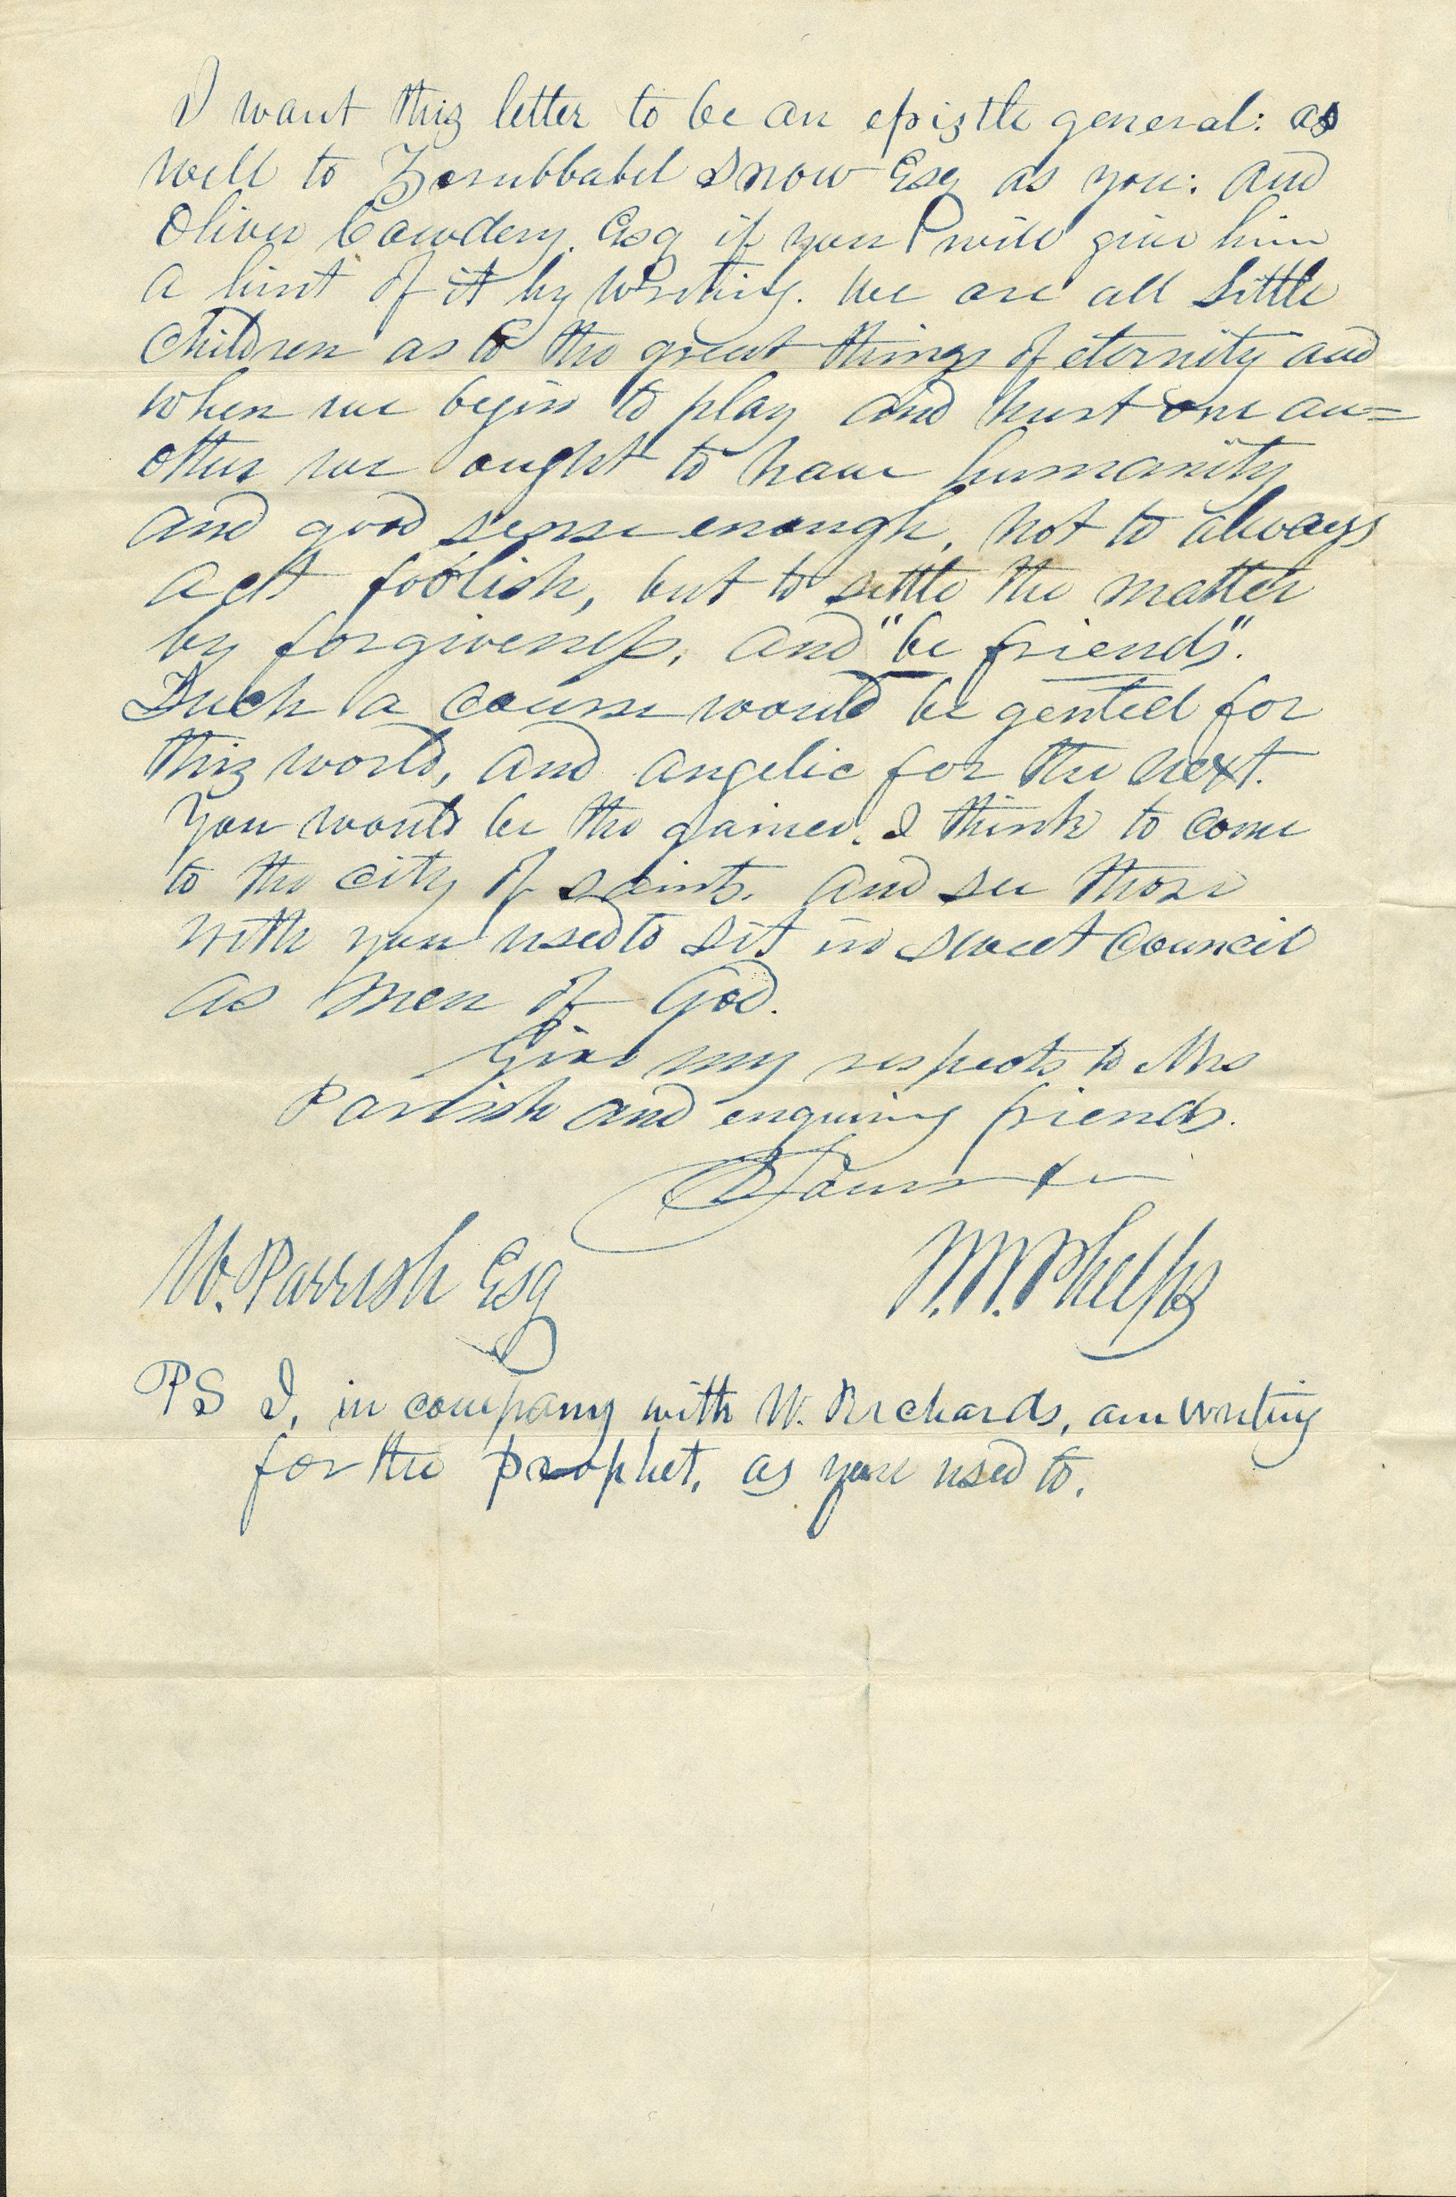 I want this letter to be an epistle general: as
well to Zerubbabel Snow Esq as you: and
Oliver Cowdery. Esq if you will give him
a hint of it by writing. We are all little
children as to the great things of eternity and
when we begin to play and hurt one an=
other we ought to have humanity
and good sense enough, not to always
act foolish, but to settle the matter
by forgiveness, and "be friends".
Such a course would be genteel for
this world, and angelic for the next.
You would be the gainer. I think to come
to the city of saints. and see those
with you used to sit in sweet council
as men of God.
Give my respects to Mrs
Parrish and enquiring friends.
Yours &c
W. Parrish Esq
W. W. Phelps
PS I, in company with W. Richards, am writing
for the prophet, as you used to.